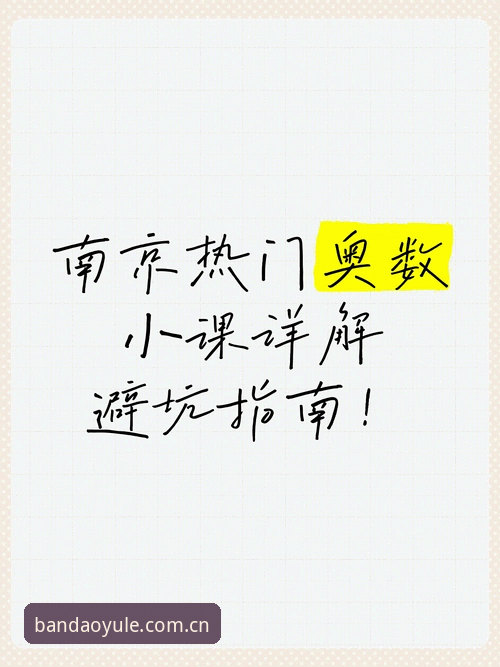 南京热门奥数
小课详解
避坑指南！
bandaoyule.com.cn